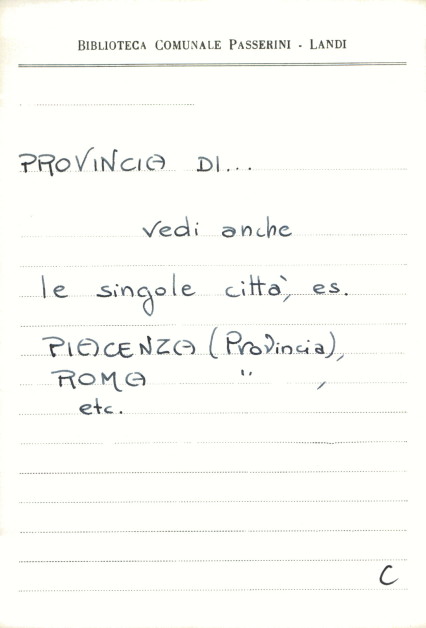 BIBLIOTECA COMUNALE PASSERINI - LANDI
PROVINCIA DI...
vedi anche
le singole città, es.
PIACENZA (Provincia),
ROMA " ,
etc.
C